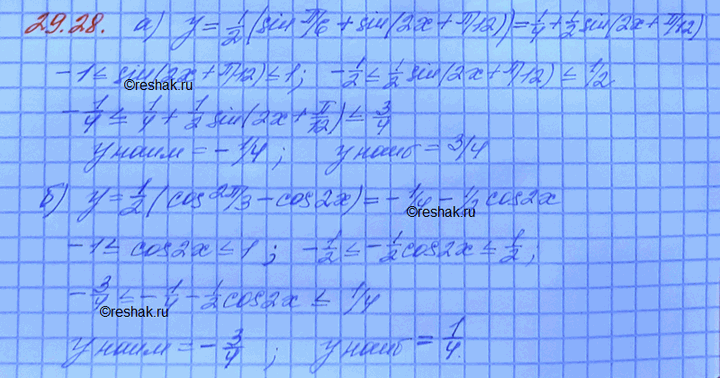 29.28. а) y = 1/2 (sin π/6 + sin(2x + π/12)) = 1/4 + 1/2 sin(2x + π/12)
-1 ≤ sin(2x + π/12) ≤ 1; -1/2 ≤ 1/2 sin(2x + π/12) ≤ 1/2
©reshak.ru
-1/4 ≤ 1/4 + 1/2 sin(2x + π/12) ≤ 3/4
y наим = -1/4; y наиб = 3/4
б) y = 1/2 (cos 2π/3 - cos 2x) = -1/4 - 1/2 cos 2x
©reshak.ru
-1 ≤ cos 2x ≤ 1; -1/2 ≤ -1/2 cos 2x ≤ 1/2;
-3/4 ≤ -1/4 - 1/2 cos 2x ≤ 1/4
©reshak.ru
y наим = -3/4; y наиб = 1/4.